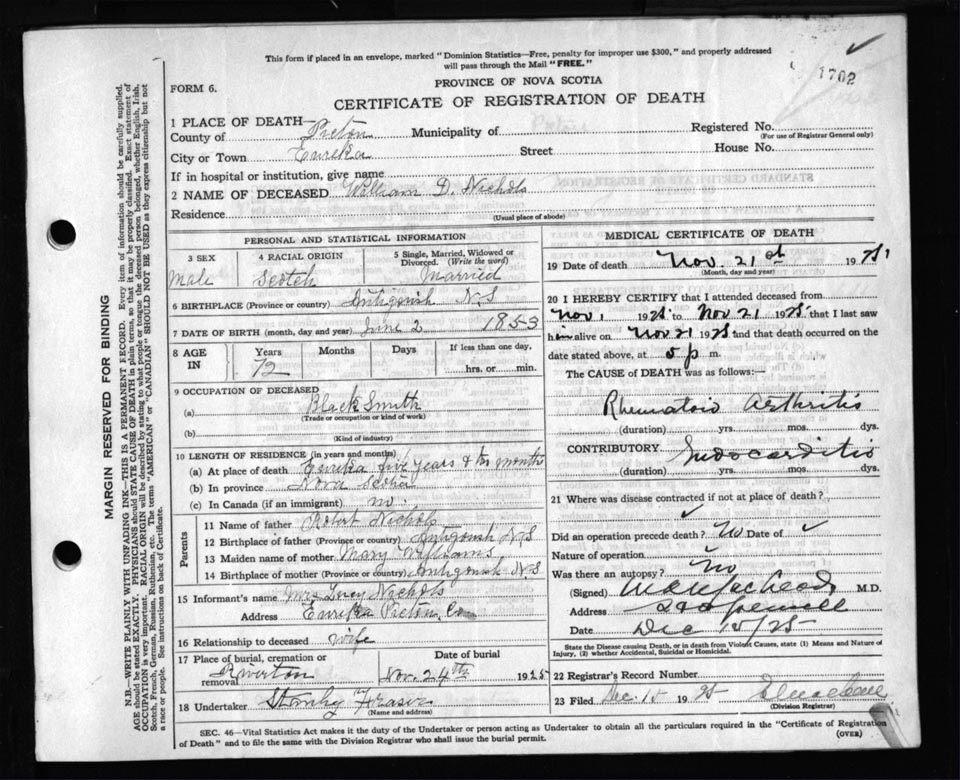 This form if placed in an envelope, marked "Dominion Statistics—Free, penalty for improper use $300," and properly addressed
will pass through the Mail "FREE."
1702
PROVINCE OF NOVA SCOTIA
FORM 6.
CERTIFICATE OF REGISTRATION OF DEATH
1 PLACE OF DEATH—
County of Pictou Municipality of Registered No.
(For use of Registrar General only)
City or Town Eureka Street House No.
If in hospital or institution, give name
2 NAME OF DECEASED William D. Nichols
Residence
(Usual place of abode)
PERSONAL AND STATISTICAL INFORMATION
3 SEX
Male
4 RACIAL ORIGIN
Scotch
5 Single, Married, Widowed or
Divorced. (Write the word)
Married
6 BIRTHPLACE (Province or country) Antigonish N.S
7 DATE OF BIRTH (month, day and year) June 2 1853
8 AGE
IN
Years Months Days If less than one day,
72 hrs. or min.
9 OCCUPATION OF DECEASED
(a) Black Smith
(Trade or occupation or kind of work)
(b)
(Kind of industry)
10 LENGTH OF RESIDENCE (in years and months)
(a) At place of death Eureka five years & month
(b) In province Nova Scotia
(c) In Canada (if an immigrant) no.
Parents
11 Name of father Robert Nichols
12 Birthplace of father (Province or country) Antigonish N.S
13 Maiden name of mother Mary Williams
14 Birthplace of mother (Province or country) Antigonish N.S
15 Informant's name Mrs Nichols
Address Eureka Pictou Co
16 Relationship to deceased wife
17 Place of burial, cremation or
removal Riverton
Date of burial
Nov. 24th 1925
18 Undertaker Fraser
(Name and address)
MEDICAL CERTIFICATE OF DEATH
19 Date of death Nov. 21st 1925
(Month, day and year)
20 I HEREBY CERTIFY that I attended deceased from
Nov 1 1925 to Nov 21 1925 that I last saw
him alive on Nov 21 1925 and that death occurred on
date stated above, at 5 p m.
The CAUSE of DEATH was as follows:—
Rheumatoid Arthritis
(duration) yrs. mos. dys.
CONTRIBUTORY Endocarditis
(duration) yrs. mos. dys.
21 Where was disease contracted if not at place of death?
Did an operation precede death? No Date of
Nature of operation
Was there an autopsy? No
(Signed) M.D.
Address
Date Dec 15/25
State the Disease causing Death, or in death from Violent Causes, state (1) Means and Nature of
Injury, (2) whether Accidental, Suicidal or Homicidal.
22 Registrar's Record Number
23 Filed Dec. 15 1925
(Division Registrar)
SEC. 46—Vital Statistics Act makes it the duty of the Undertaker or person acting as Undertaker to obtain all the particulars required in the "Certificate of Registration
of Death" and to file the same with the Division Registrar who shall issue the burial permit.
(OVER)
MARGIN RESERVED FOR BINDING
N.B.—WRITE PLAINLY WITH UNFADING INK—THIS IS A PERMANENT RECORD. Every item of information should be carefully supplied.
AGE should be stated EXACTLY. PHYSICIANS should STATE CAUSE OF DEATH in plain terms, so that it may be properly classified. Exact statement of
OCCUPATION is very important. RACIAL ORIGIN will be described by stating to what people or tongue, the deceased person belonged, whether English, Irish,
Scotch, French, German, Russian, Ruthenian, etc. The terms "AMERICAN" or "CANADIAN" SHOULD NOT BE USED as they express citizenship but not
a race or people. See instructions on back of Certificate.